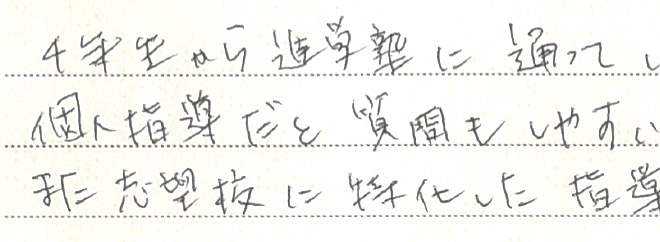 4年生から進学塾に通ってい
個人指導だと質問もしやすい
また志望校に特化した指導